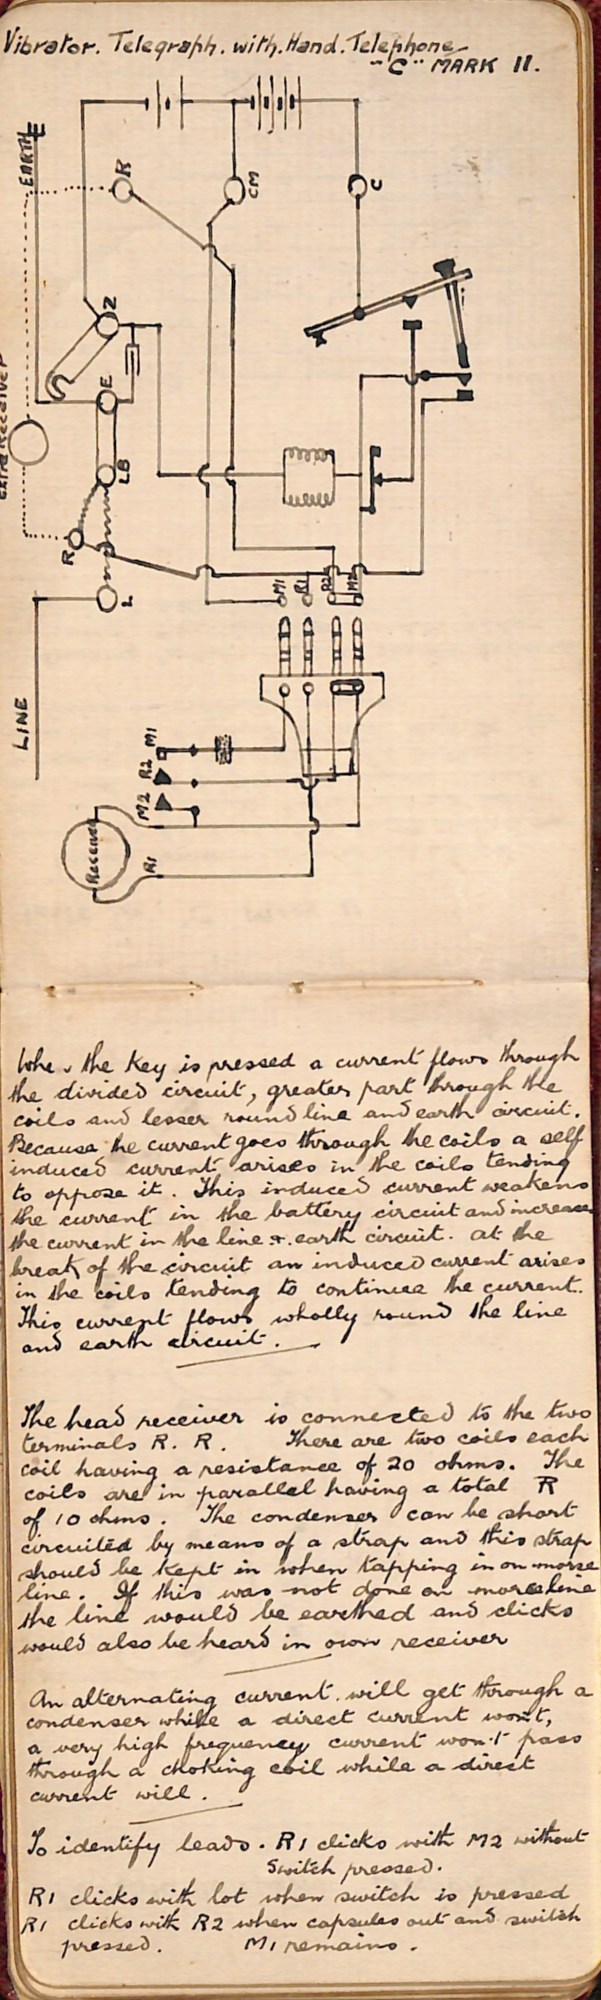 Vibrator. Telegraph. with. Hand. Telephone
"C" MARK II.
EARTH
E
R
CM
C
Z
E
LB
R
L
LINE
M1
R1
R2
M2
M1
R2
M2
Receiver
R1
the key is pressed a current flows through
the divided circuit, greater part through the
coils and lesser round line and earth circuit.
Because the current goes through the coils a self
induced current arises in the coils tending
to oppose it. This induced current weakens
the current in the battery circuit and increase
the current in the line & earth circuit. at the
break of the circuit an induced current arises
in the coils tending to continue the current.
This current flows wholly round the line
and earth circuit.
The head receiver is connected to the two
terminals R. R. There are two coils each
coil having a resistance of 20 ohms. The
coils are in parallel having a total R
of 10 ohms. The condenser can be short
circuited by means of a strap and this strap
should be kept in when tapping in on morse
line. If this was not done on line
the line would be earthed and clicks
would also be heard in own receiver
An alternating current. will get through a
condenser while a direct current wont,
a very high frequency current won't pass
through a choking coil while a direct
current will.
To identify leads. R1 clicks with M2 without
switch pressed.
R1 clicks with lot when switch is pressed
R1 clicks with R2 when capsules out and switch
pressed. M1 remains.